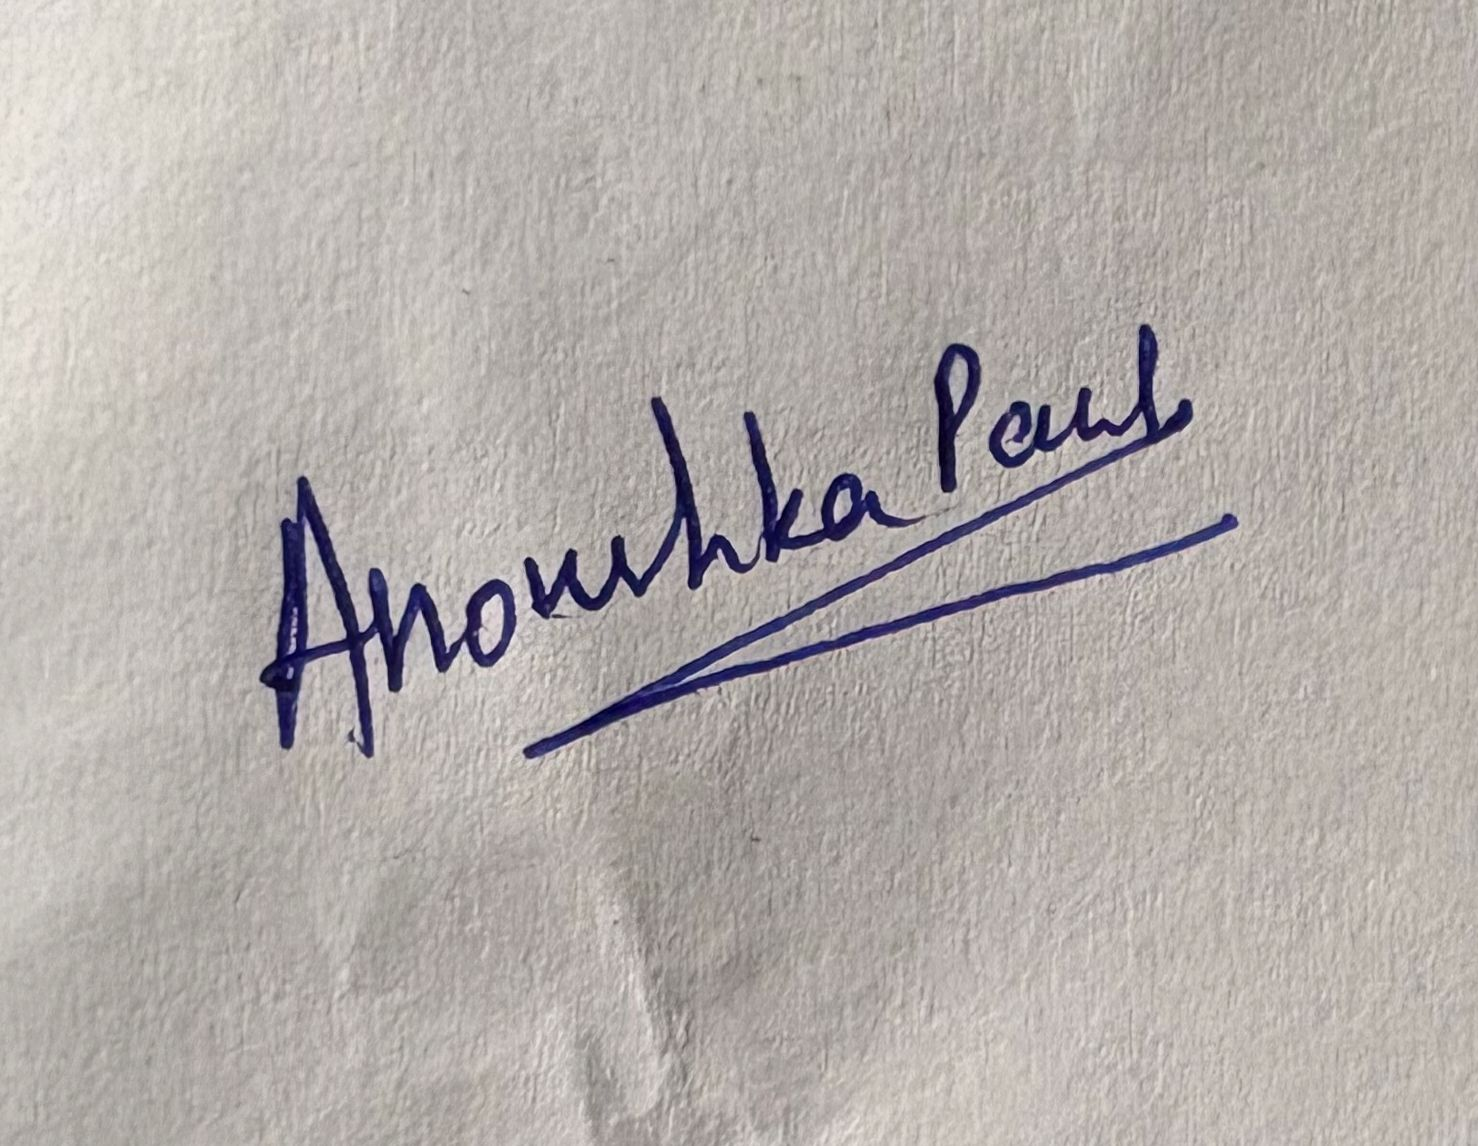 Anoushka Paul